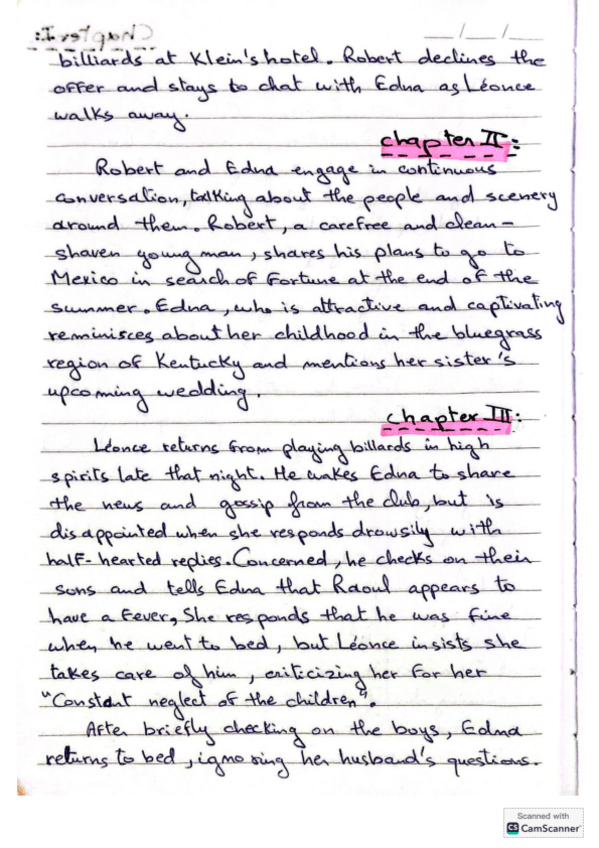 Chapter I:
__/__/__
billiards at Klein's hotel. Robert declines the
offer and stays to chat with Edna as Léonce
walks away.
chapter II:
Robert and Edna engage in continuous
conversation, talking about the people and scenery
around them. Robert, a carefree and clean-
shaven young man, shares his plans to go to
Mexico in search of Fortune at the end of the
summer. Edna, who is attractive and captivating
reminisces about her childhood in the bluegrass
region of Kentucky and mentions her sister's
upcoming wedding.
chapter III:
Léonce returns from playing billards in high
spirits late that night. He wakes Edna to share
the news and gossip from the club, but is
disappointed when she responds drowsily with
half-hearted replies. Concerned, he checks on their
sons and tells Edna that Raoul appears to
have a Fever, She responds that he was fine
when he went to bed, but Léonce insists she
takes care of him, criticizing her for her
"Constant neglect of the children".
After briefly checking on the boys, Edna
returns to bed, ignoring her husband's questions.
Scanned with
CS CamScanner